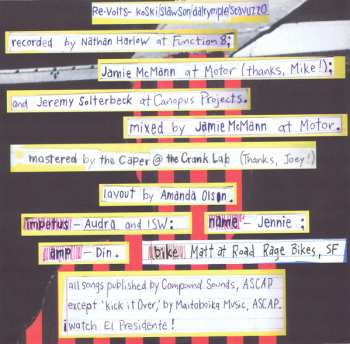 Re-Volts- Koski/Slawson/dalrymple/scavuzzo
recorded by Nathan Harlow at Function 8;
Jamie McMann at Motor (thanks, Mike!);
and Jeremy Solterbeck at Canopus Projects.
mixed by Jamie McMann at Motor.
mastered by the Caper @ the Crank Lab (Thanks, Joey!)
layout by Amanda Olson.
impetus - Audra and ISW: name - Jennie;
amp - Din. bike Matt at Road Rage Bikes, SF
all songs published by Compound Sounds, ASCAP
except 'kick it Over,' by Maitoboika Music, ASCAP.
¡watch El Presidente!